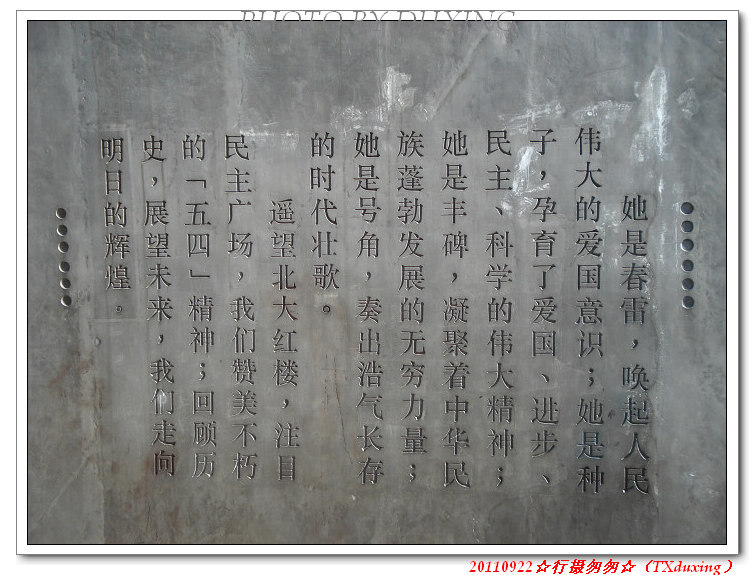 PHOTO BY DUXING
她是春雷，唤起人民
伟大的爱国意识；她是种
子，孕育了爱国、进步、
民主、科学的伟大精神；
她是丰碑，凝聚着中华民
族蓬勃发展的无穷力量；
她是号角，奏出浩气长存
的时代壮歌。
遥望北大红楼，注目
民主广场，我们赞美不朽
的「五四」精神；回顾历
史，展望未来，我们走向
明日的辉煌。
20110922☆行摄匆匆☆（TXduxing）